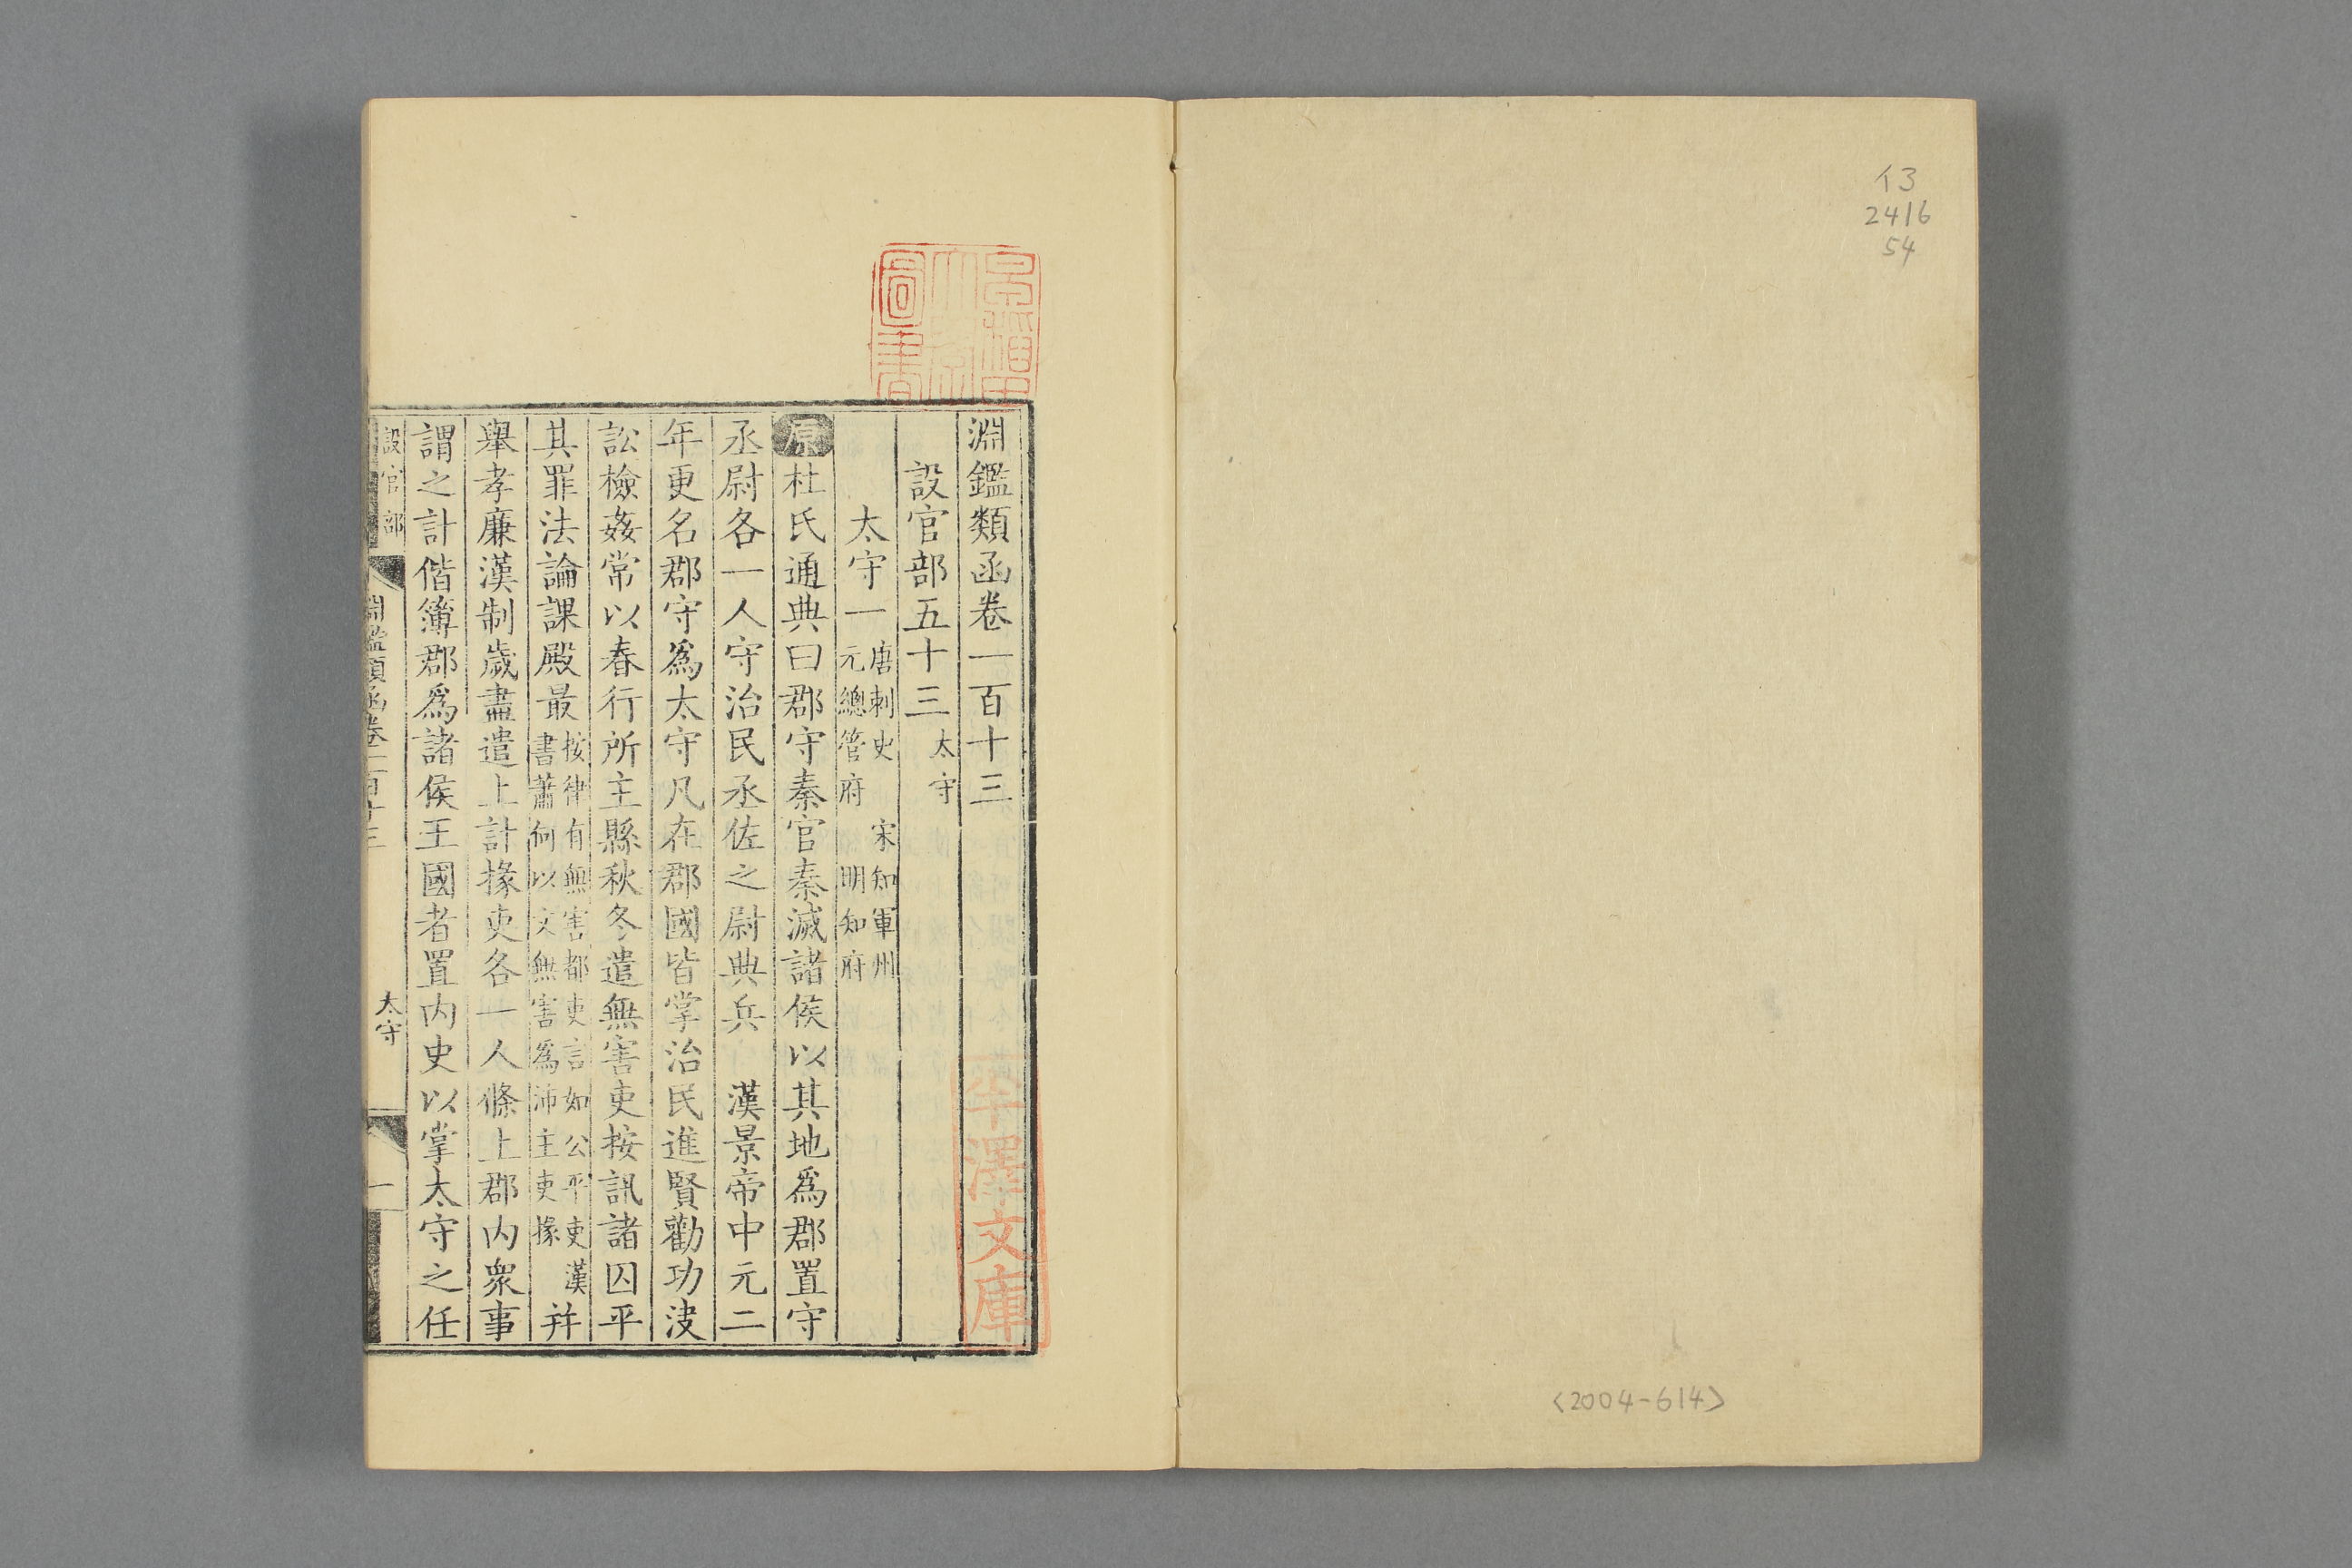 イ3
2416
54
<2004-614>
淵鑑類函卷一百十三
設官部五十三 太守
太守一 唐刺史 宋知軍州
元總管府 明知府
原杜氏通典曰郡守秦官秦滅諸侯以其地爲郡置守
丞尉各一人守治民丞佐之尉典兵 漢景帝中元二
年更名郡守爲太守凡在郡國皆掌治民進賢勸功決
訟檢姦常以春行所主縣秋冬遣無害吏按訊諸囚平
其罪法論課殿最 按律有無害都吏言如公平吏漢
書蕭何以文無害爲沛主吏掾 并
舉孝廉漢制歲盡遣上計掾吏各一人條上郡內衆事
謂之計偕簿郡爲諸侯王國者置內史以掌太守之任
設官部 淵鑑類函卷一百十三 太守 一
圖書
澤文庫